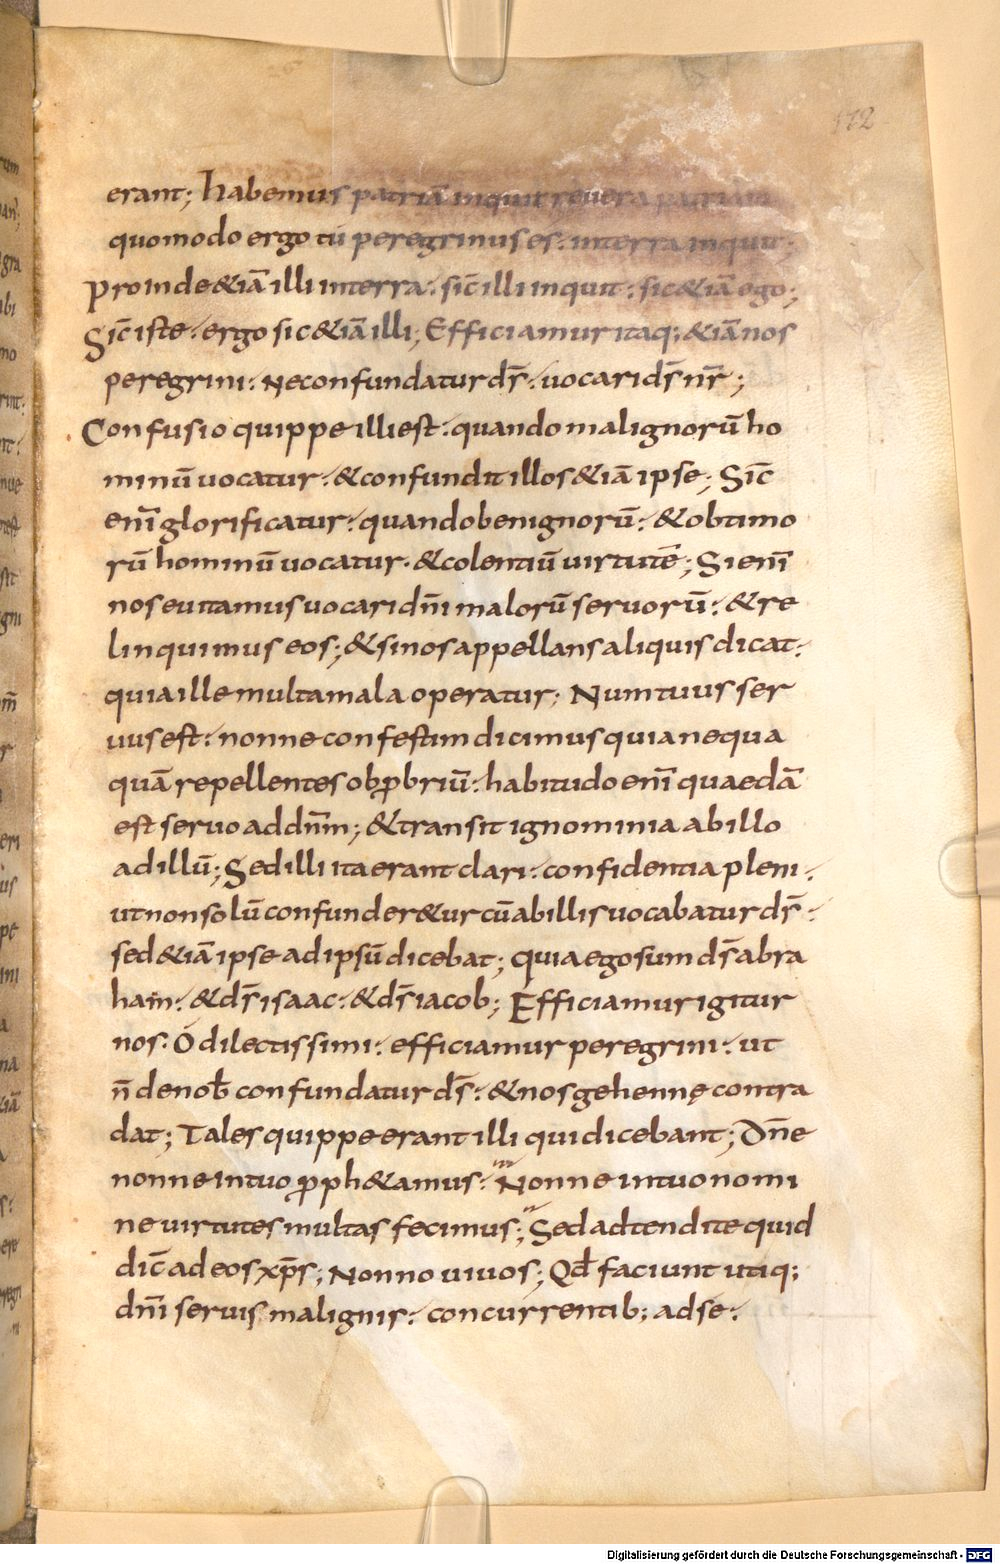 172
erant; habemus patriā inquit revera patriam
quomodo ergo tú peregrinus es. interra inquit;
proinde &iā illi interra. sic̄ illi inquit. sic &iā ego;
Sic̄ iste. ergo sic &iā illi; Efficiamur itaq; &iā nos
peregrini. Ne confundatur ds̄. uocari ds̄ nr̄;
Confusio quippe illi est. quando malignorū ho
minū uocatur. & confundit illos &iā ipse; Sic̄
enī glorificatur. quando benignorū. & obtimo
rū hominū uocatur. & colentiū uirtutē; Si enī
nos euitamus uocari dn̄i malorū seruorū. & re
linquimus eos; & si nos appellans aliquis dicat.
quia ille multa mala operatur; Num tuus ser
uus est. nonne confestim dicimus quia nequa
quā repellentes obꝓbriū. habitudo enī quaedā
est seruo ad dn̄m; & transit ignominia ab illo
ad illū; Sed illi ita erant clari. confidentia pleni.
ut non solū confunder&ur cū ab illis uocabatur ds̄.
sed &iā ipse ad ipsū dicebat; quia ego sum ds̄ abra
ham. & ds̄ isaac. & ds̄ iacob; Efficiamur igitur
nos. Ó dilectissimi. efficiamur peregrini. ut
n̄ de nob̄ confundatur ds̄. & nos gehennę contra
dat; Tales quippe erant illi qui dicebant; Dn̄e
nonne in tuo ꝓph&amus. Nonne in tuo nomi
ne uirtutes multas fecimus; Sed adtendite quid
dic̄ ad eos xp̄s; Non noui uos; Qd̄ faciunt utiq;
dn̄i seruis malignis. concurrentib; ad se.
Digitalisierung gefördert durch die Deutsche Forschungsgemeinschaft - DFG